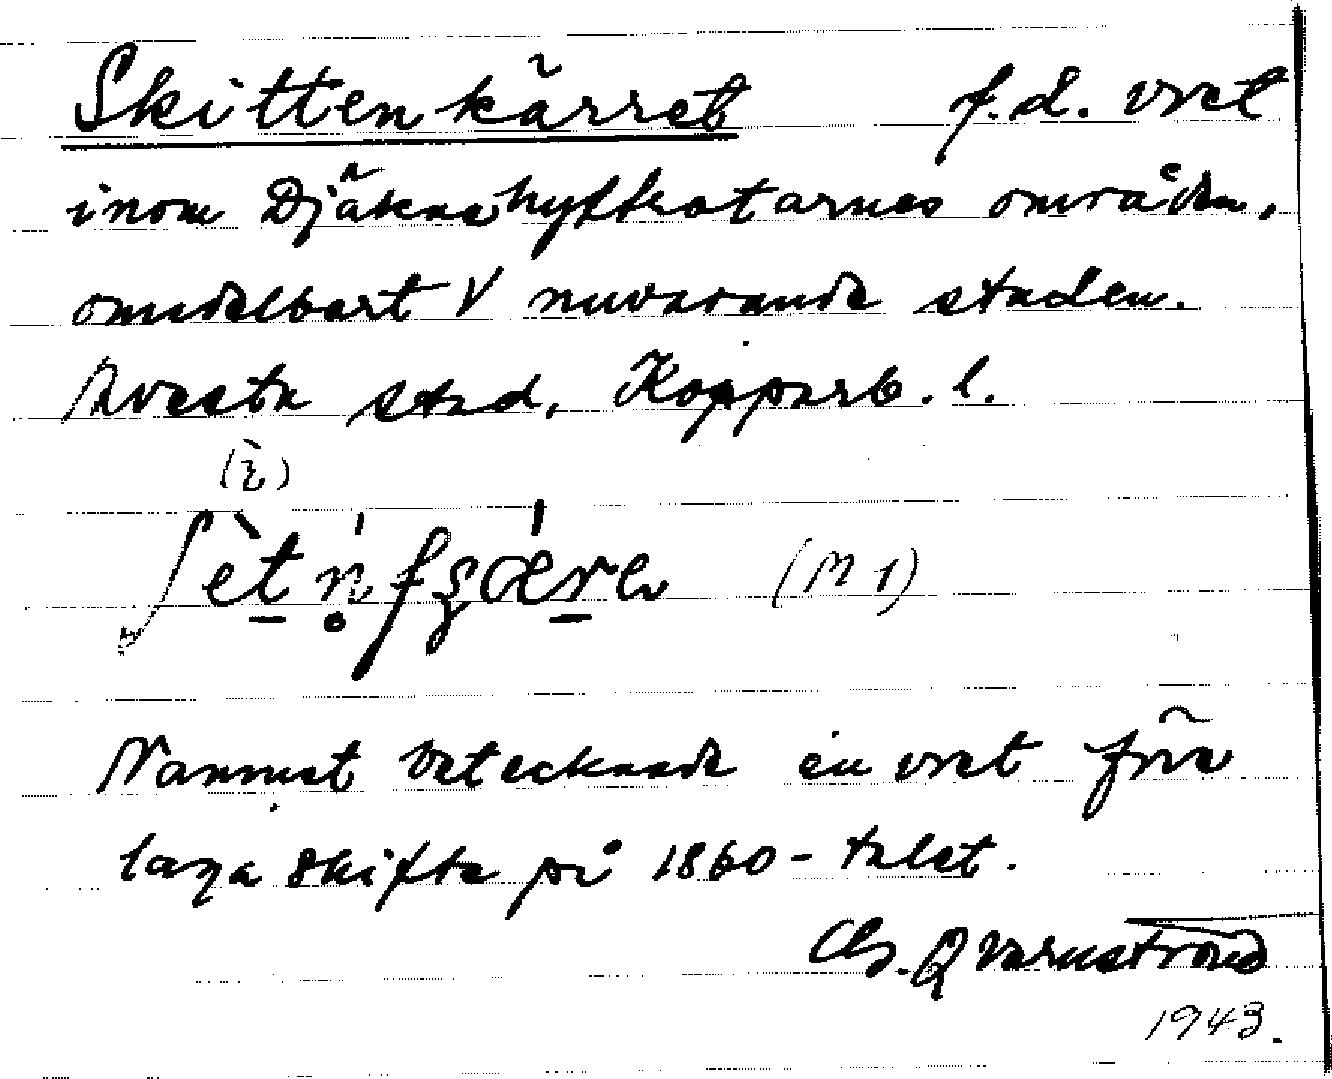 Skittenkärret f.d. vret
inom Djäknehyttetäkternas område,
omedelbart V nuvarande staden.
Avesta stad, Kopparb. l.
(ì)
ʃètn̥fʂǽra (M 1)
Namnet betecknade en vret före
laga skifte på 1860-talet.
Qvarnström
1943.